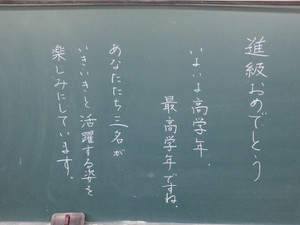 進級おめでとう
いよいよ高学年、
最高学年ですね。
あなたたち三名が
いきいきと活躍する姿を
楽しみにしています。